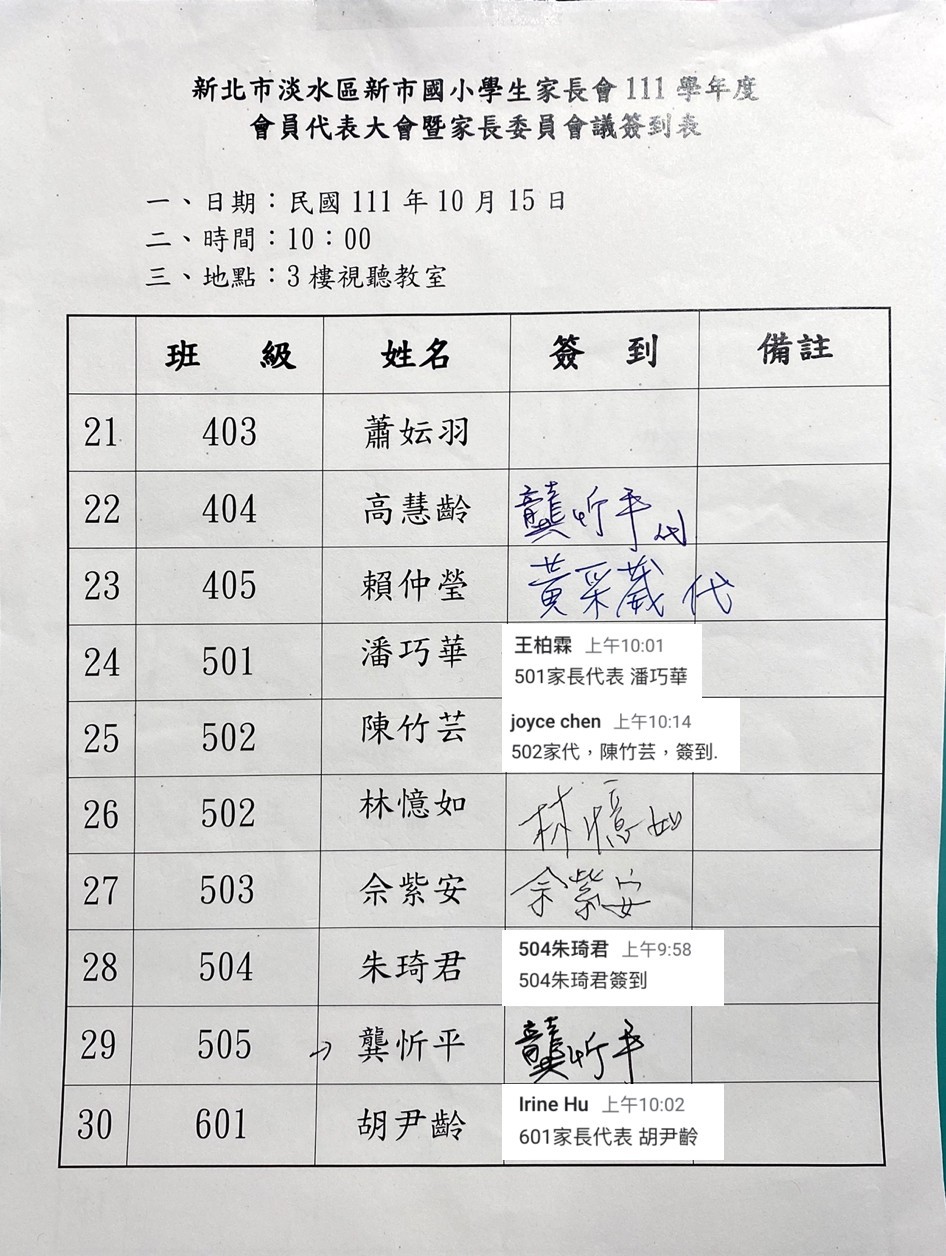 新北市淡水區新市國小學生家長會 111 學年度
會員代表大會暨家長委員會議簽到表
一、日期：民國 111 年 10 月 15 日
二、時間：10：00
三、地點：3 樓視聽教室
班 級 姓名 簽 到 備註
21 403 蕭妘羽
22 404 高慧齡 龔忻平代
23 405 賴仲瑩 黃采葳 代
24 501 潘巧華 王柏霖 上午10:01
501家長代表 潘巧華
25 502 陳竹芸 joyce chen 上午10:14
502家代，陳竹芸，簽到.
26 502 林憶如 林憶如
27 503 佘紫安 佘紫安
28 504 朱琦君 504朱琦君 上午9:58
504朱琦君簽到
29 505 → 龔忻平 龔忻平
30 601 胡尹齡 Irine Hu 上午10:02
601家長代表 胡尹齡